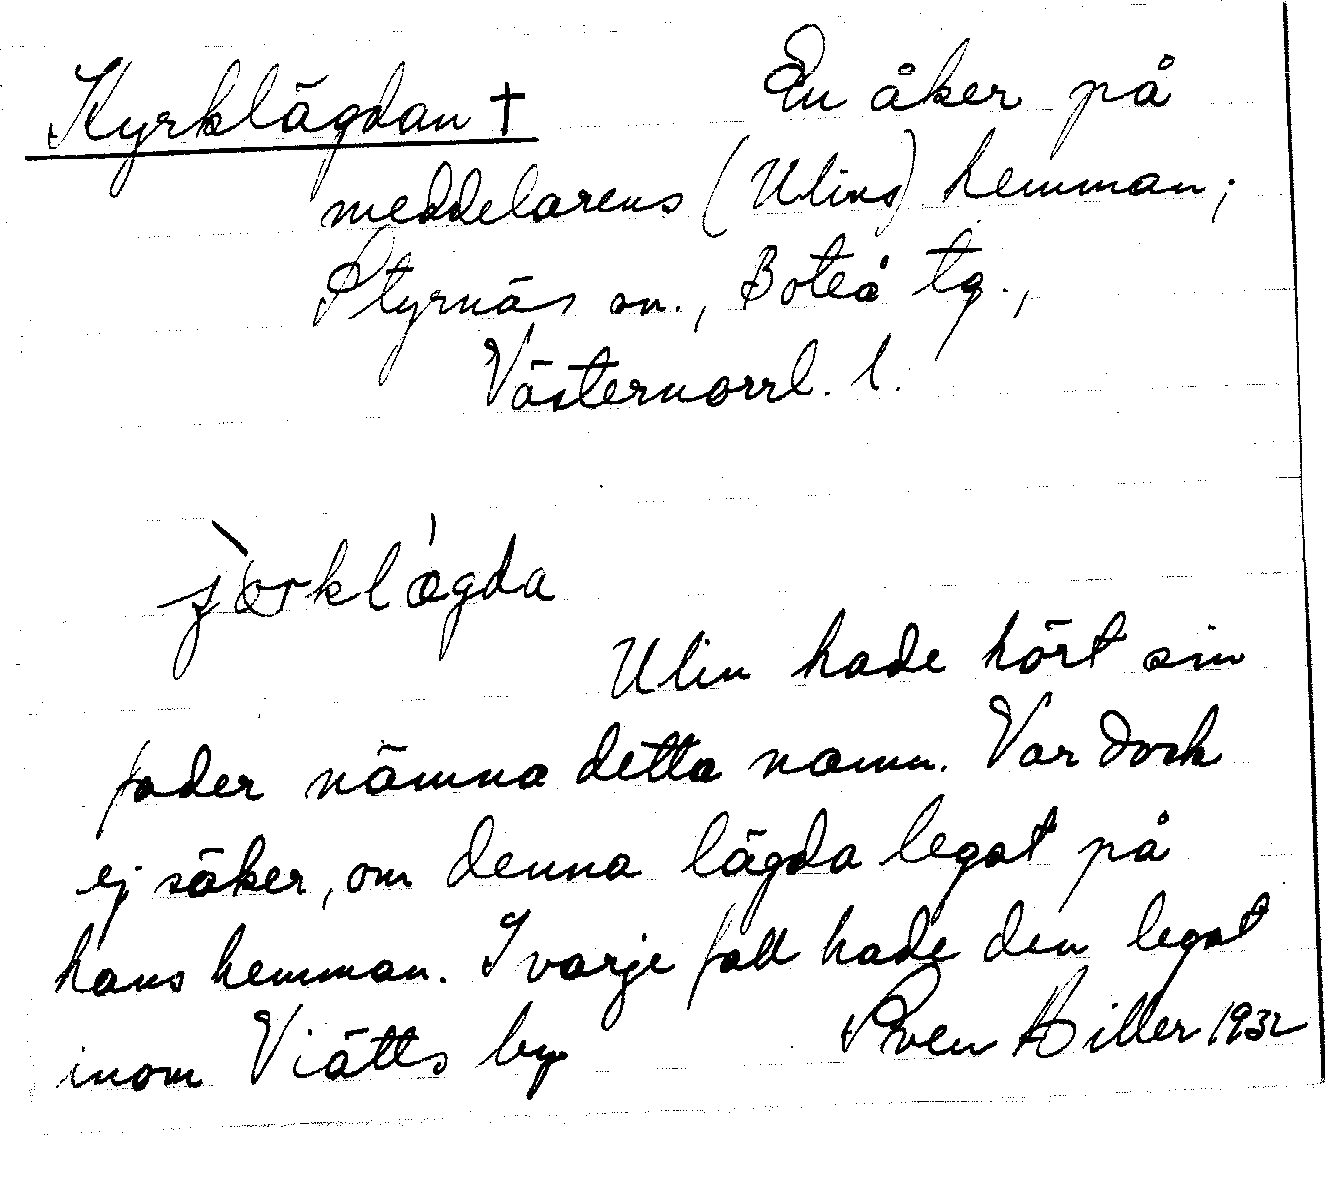 Kyrklägdan † En åker på
meddelarens (Ulins) hemman;
Styrnäs sn., Boteå tg.,
Västernorrl. l.
jòrklágda
Ulin hade hört sin
fader nämna detta namn. Var dock
ej säker, om denna lägda legat på
hans hemman. I varje fall hade den legat
inom Viätts by Sven Hiller 1932